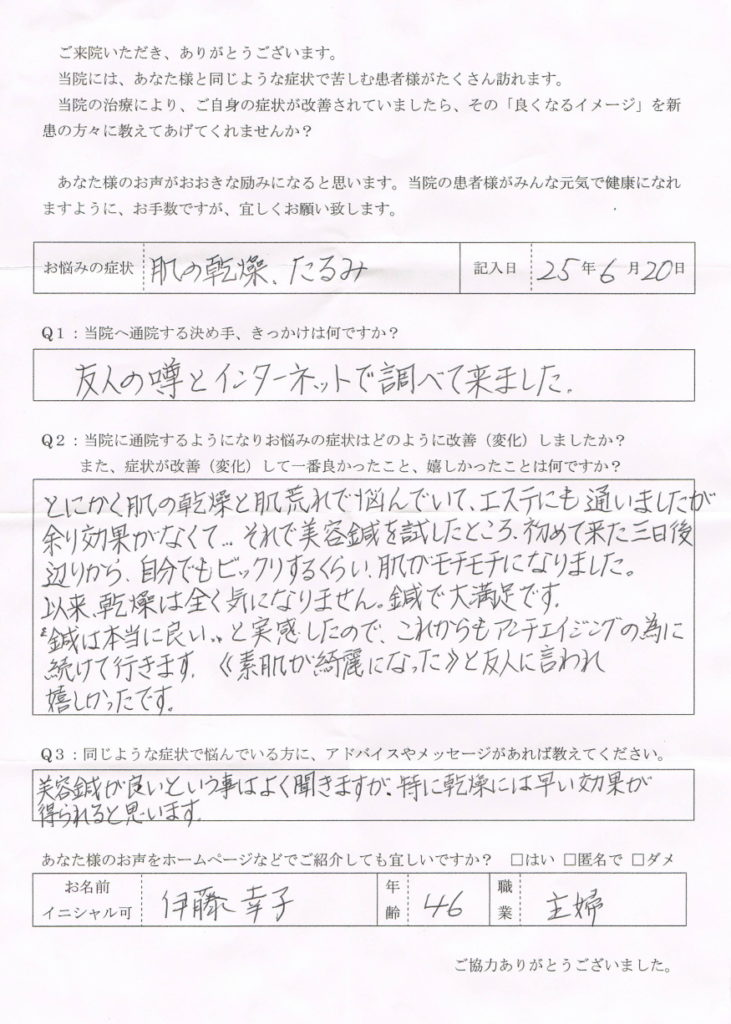 ご来院いただき、ありがとうございます。
当院には、あなた様と同じような症状で苦しむ患者様がたくさん訪れます。
当院の治療により、ご自身の症状が改善されていましたら、その「良くなるイメージ」を新
患の方々に教えてあげてくれませんか？
あなた様のお声がおおきな励みになると思います。当院の患者様がみんな元気で健康になれ
ますように、お手数ですが、宜しくお願い致します。
お悩みの症状 肌の乾燥、たるみ 記入日 25年6月20日
Q1：当院へ通院する決め手、きっかけは何ですか？
友人の噂とインターネットで調べて来ました。
Q2：当院に通院するようになりお悩みの症状はどのように改善（変化）しましたか？
また、症状が改善（変化）して一番良かったこと、嬉しかったことは何ですか？
とにかく肌の乾燥と肌荒れで悩んでいて、エステにも通いましたが
余り効果がなくて… それで美容鍼を試したところ、初めて来た三日後
辺りから、自分でもビックリするくらい、肌がモチモチになりました。
以来、乾燥は全く気になりません。鍼で大満足です。
〝鍼は本当に良い〟と実感したので、これからもアンチエイジングの為に
続けて行きます。《素肌が綺麗になった》と友人に言われ
嬉しかったです。
Q3：同じような症状で悩んでいる方に、アドバイスやメッセージがあれば教えてください。
美容鍼が良いという事はよく聞きますが、特に乾燥には早い効果が
得られると思います。
あなた様のお声をホームページなどでご紹介しても宜しいですか？ □はい □匿名で □ダメ
お名前 イニシャル可 伊藤 幸子 年齢 46 職業 主婦
ご協力ありがとうございました。